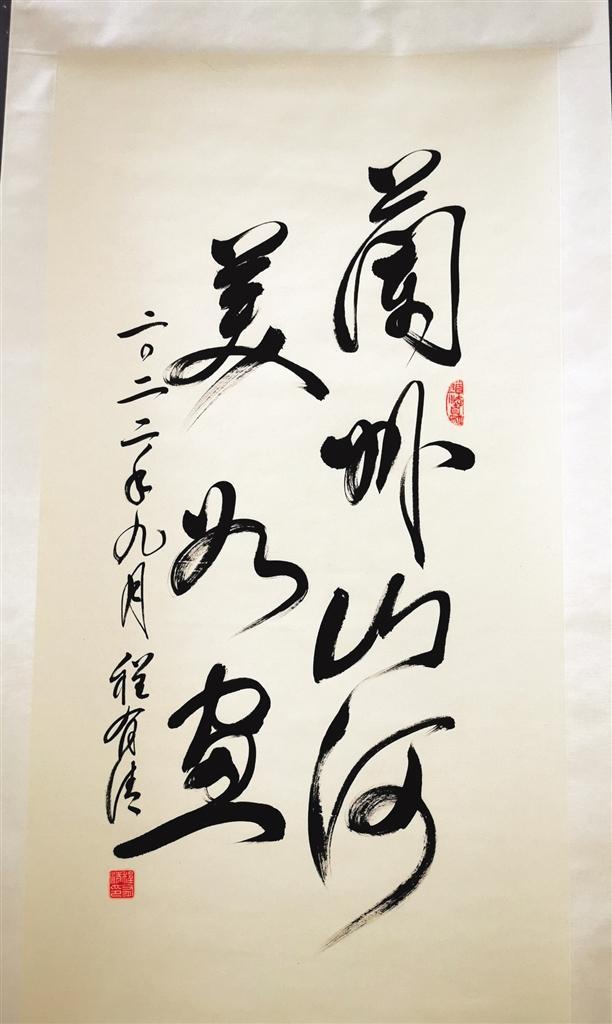 蘭州山河
美如画
二〇二二年九月 程有清